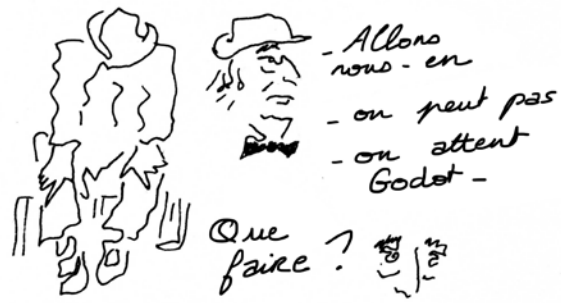 - Allons
nous-en
- on peut pas
- on attent
Godot -
Que
faire ?